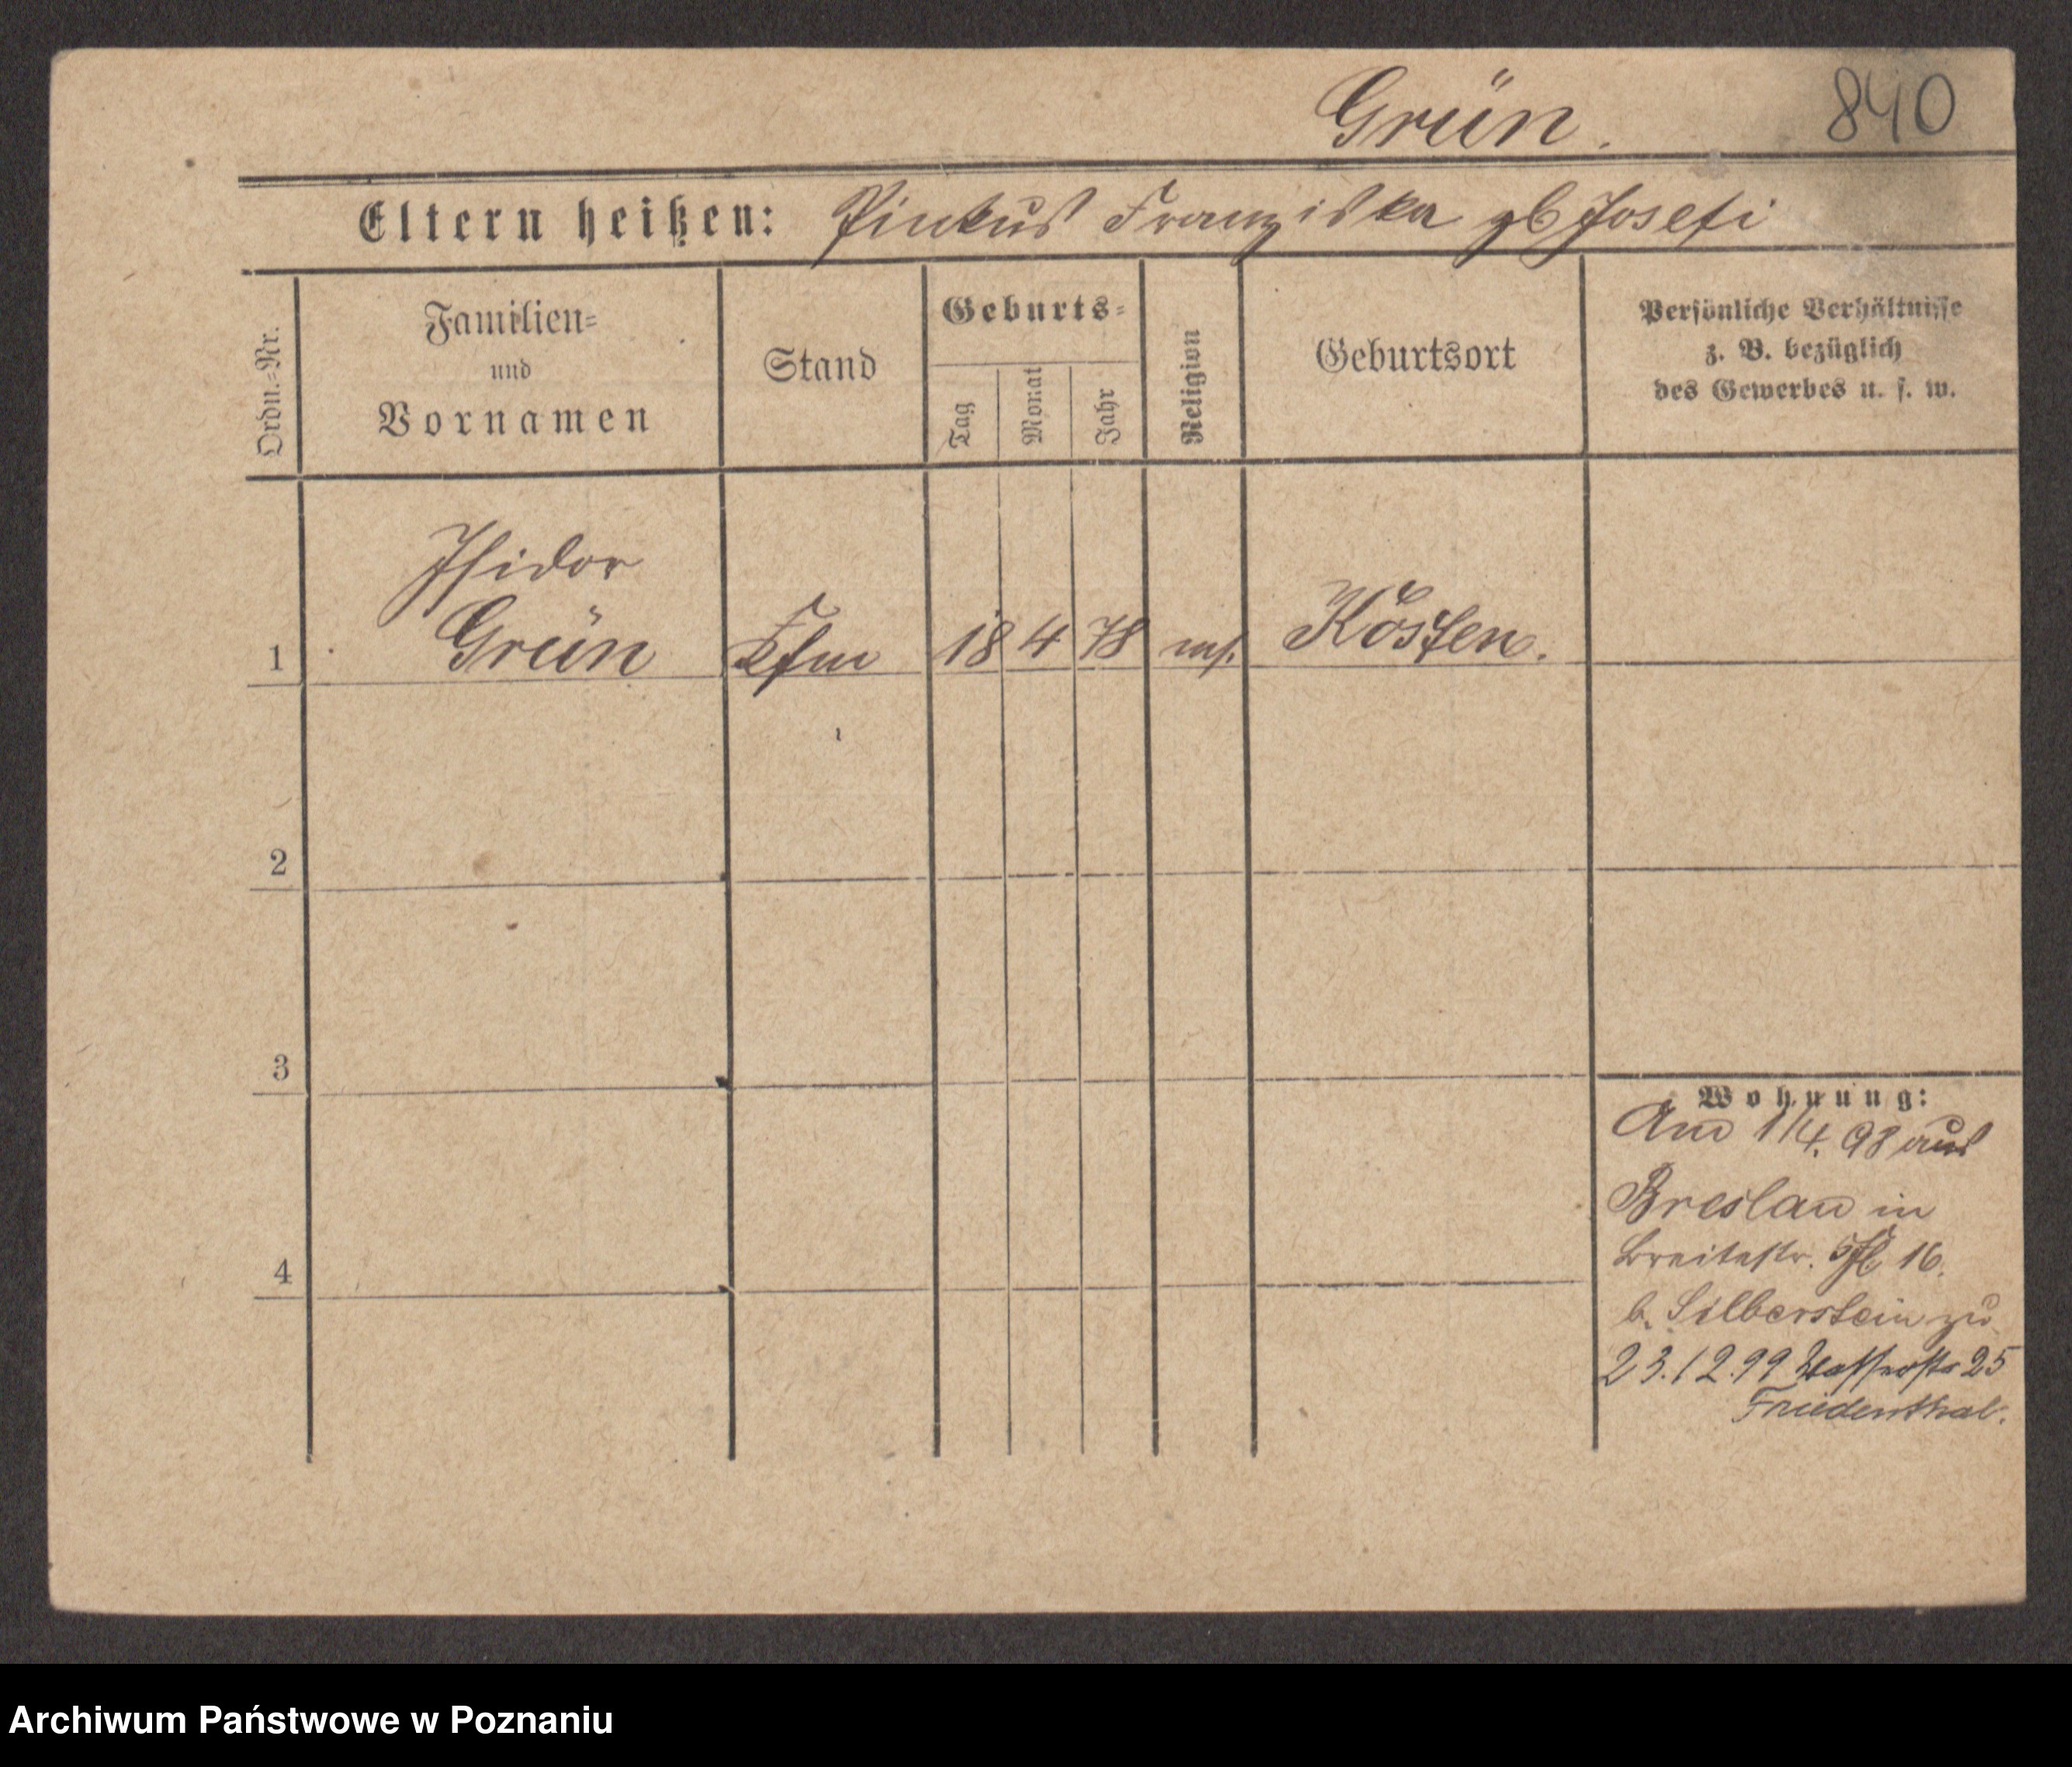 Grün. 840
Eltern heißen: Pinkus Franziska gb Josefi
Ordn.=Nr.
Familien=
und
Vornamen
Stand
Geburts=
Tag
Monat
Jahr
Religion
Geburtsort
Persönliche Verhältnisse
z. B. bezüglich
des Gewerbes u. s. w.
Isidor
1 Grün Kfm 18 4 78 ms. Kosten.
2
3
4
Wohnung:
Am 1/4. 98 aus
Breslau in
Breitestr. 16.
b. Silberstein zu
23.12.99 Wasserstr 25
Friedenthal.
Archiwum Państwowe w Poznaniu